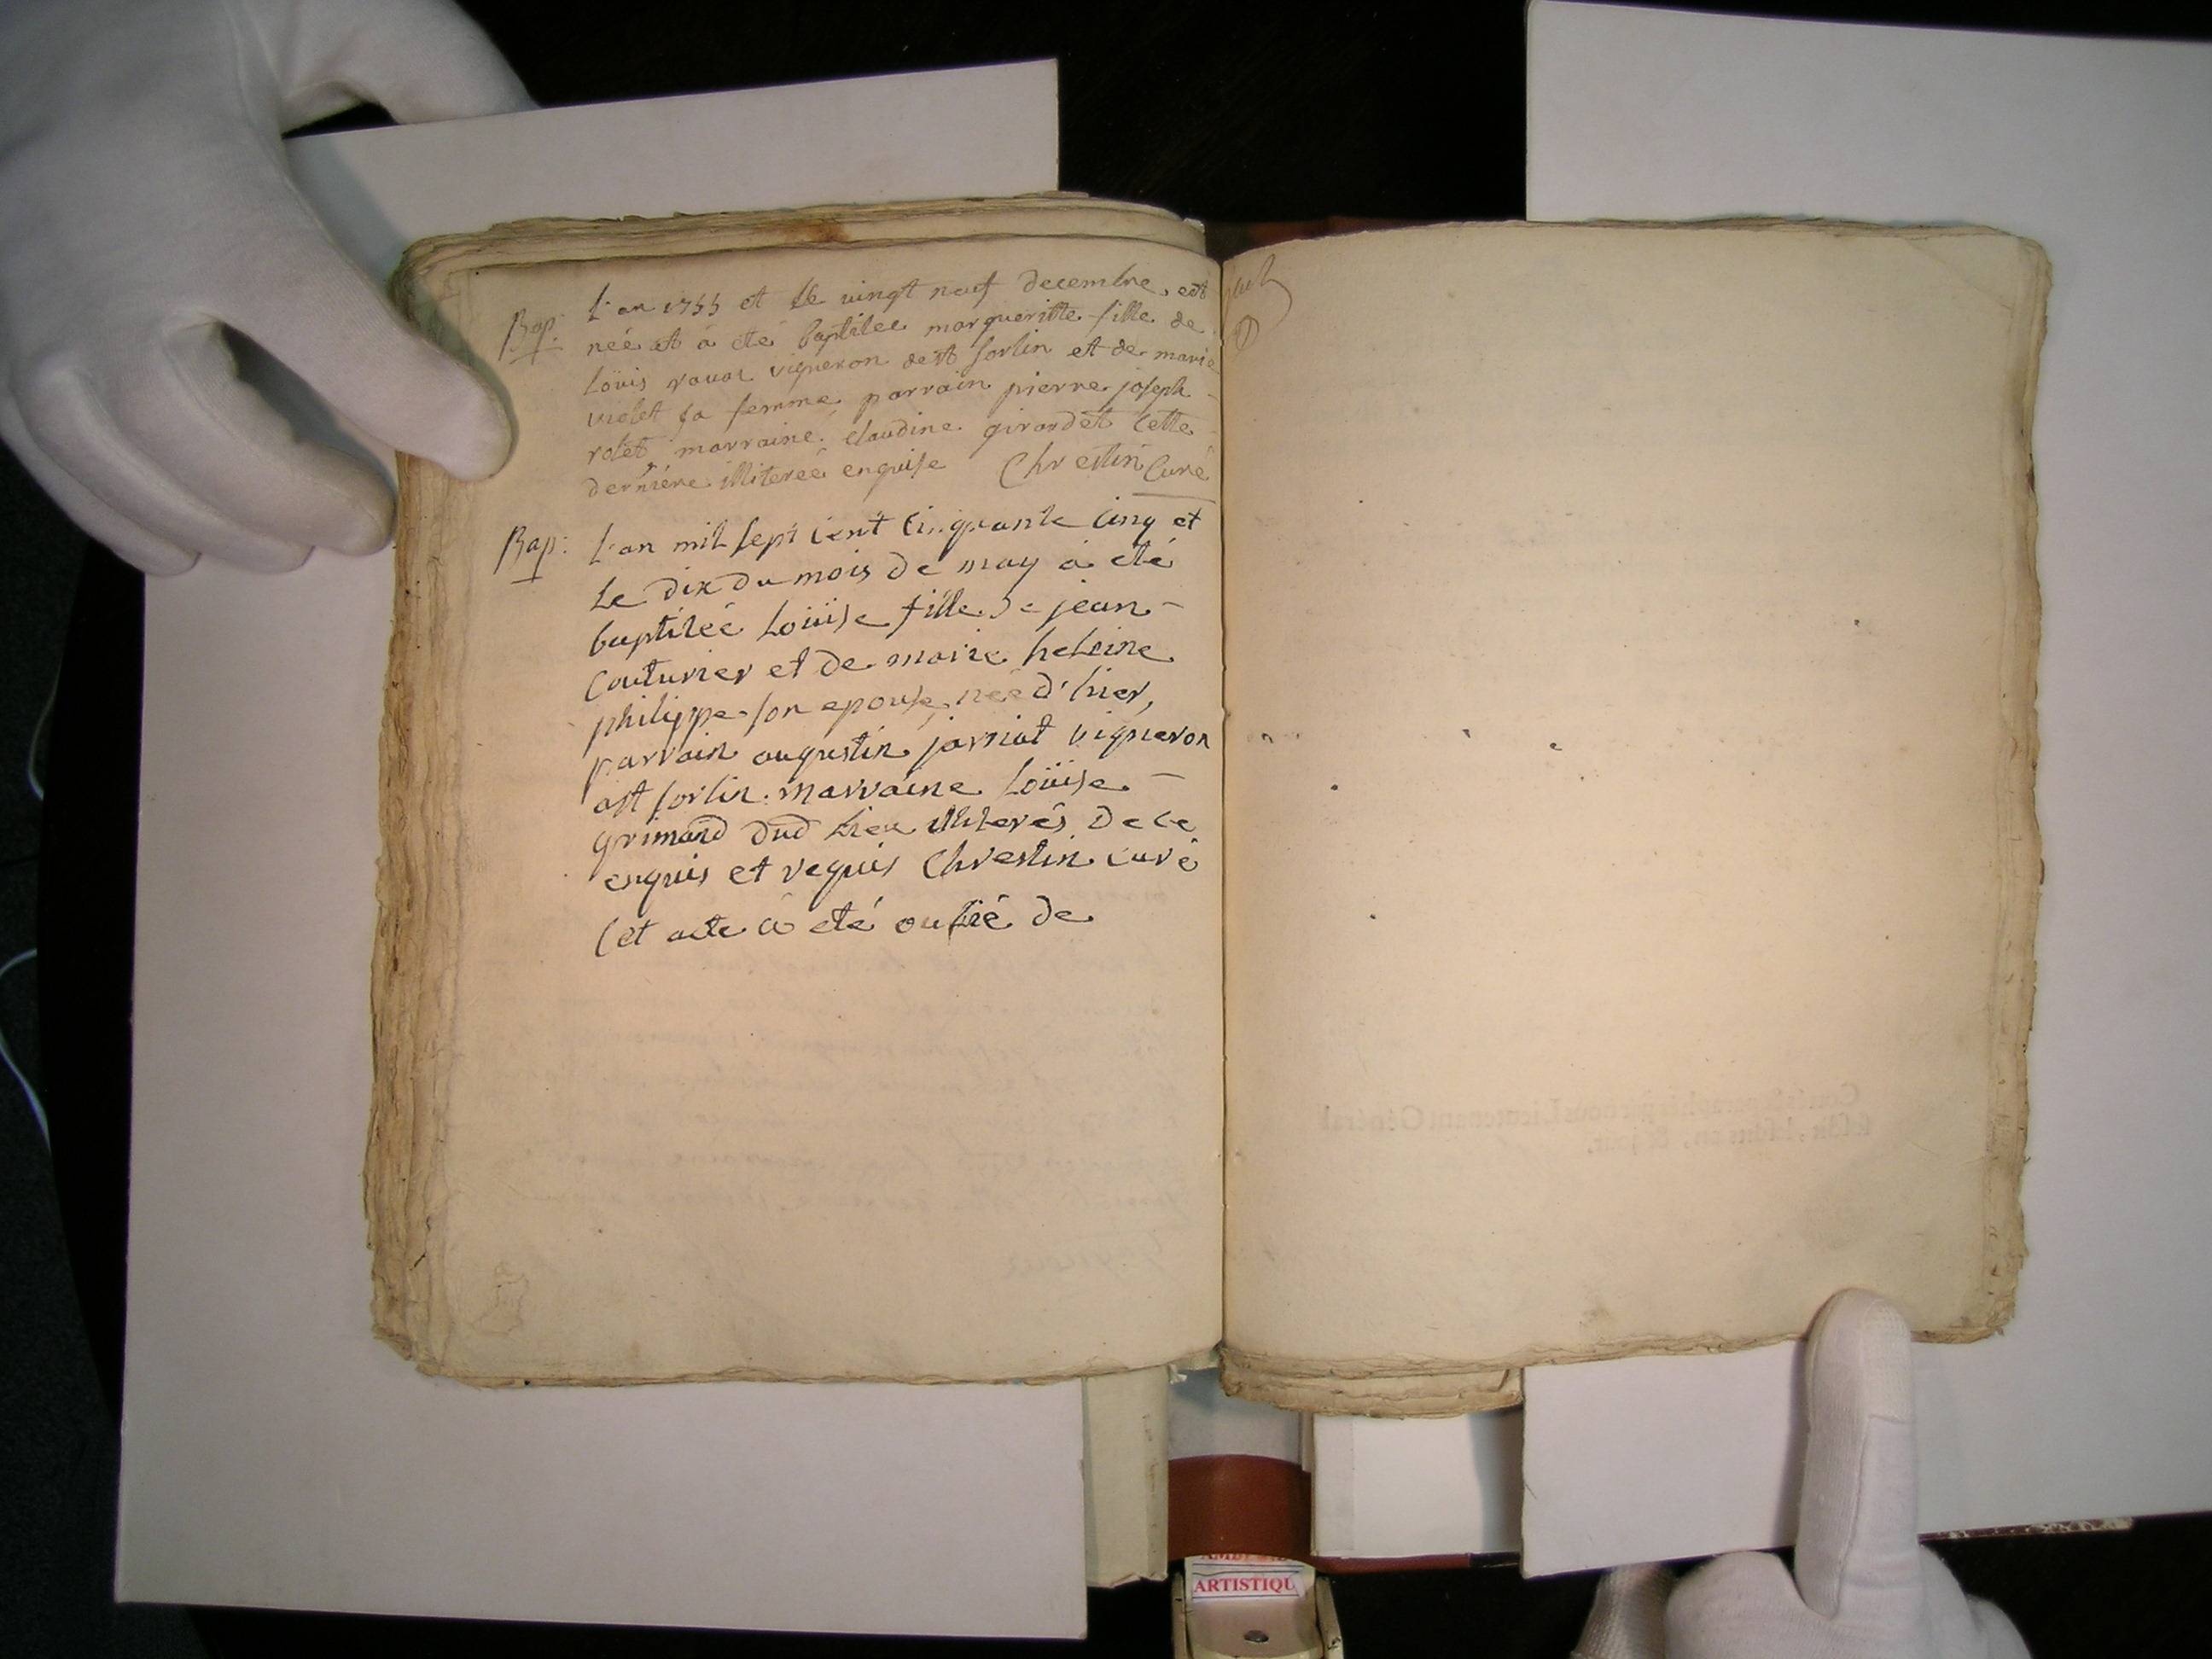 Bap: L'an 1755 et le vingt neuf decembre, est
née et à eté baptisée margueritte fille de
Loüis vigneron de st sorlin et de marie
violet sa femme parrain pierre joseph
rolet marraine claudine girardet cette
derniére illiterée enquise Chrestin Curé
Bap: L'an mil sept cent cinquante cinq et
Le dix du mois de may à eté
baptisée Loüise fille de jean
Couturier et de marie heleine
philippe son epouse, née d'hier,
parrain augustin jarniat vigneron
a st sorlin. marraine Loüise
grimand dud Lieu illiterés De ce
enquis et requis Chrestin curé
Cet acte à eté oublié de
Cotté & paraphé par nous Lieutenant Général
lesdits an, & jour.
ARTISTIQU